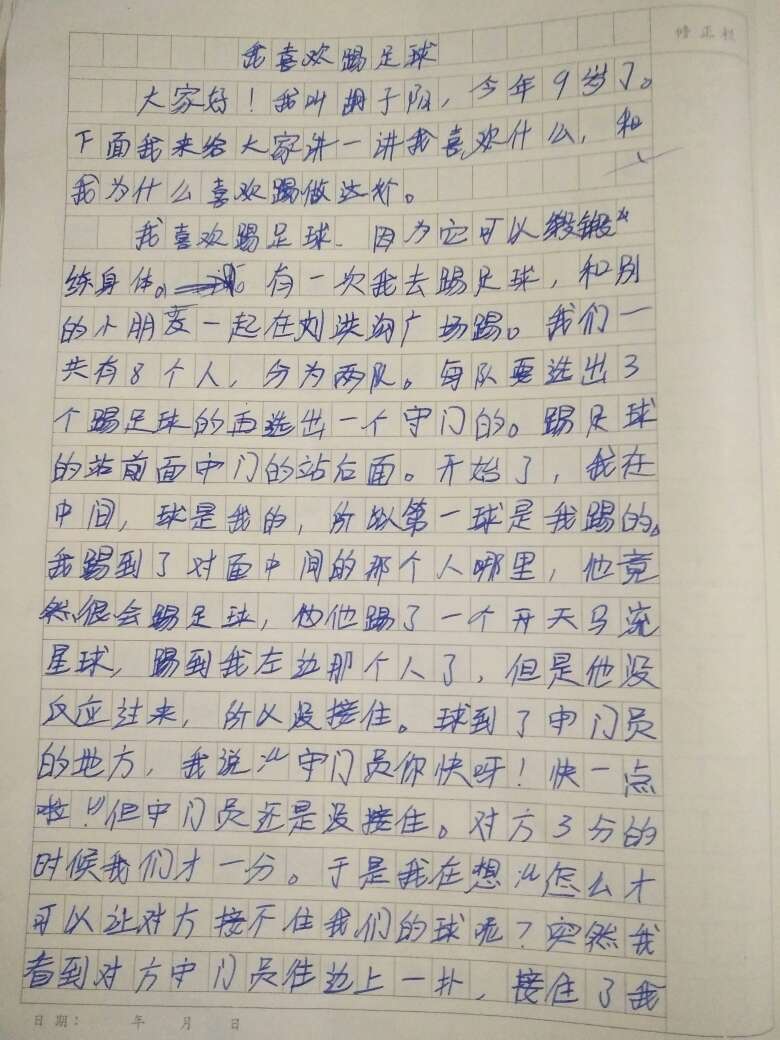 修正栏
我喜欢踢足球
大家好！我叫胡子阳，今年9岁了。
下面我来给大家讲一讲我喜欢什么，和
我为什么喜欢踢做这个。
我喜欢踢足球、因为它可以锻
练身体。有一次我去踢足球，和别
的小朋友一起在刘洪沟广场踢。我们一
共有8个人，分为两队。每队要选出3
个踢足球的再选出一个守门的。踢足球
的站前面守门的站后面。开始了，我在
中间，球是我的，所以第一球是我踢的。
我踢到了对面中间的那个人哪里，他竟
然很会踢足球，他踢了一个开天马流
星球，踢到我左边那个人了，但是他没
反应过来，所以没接住。球到了守门员
的地方，我说“守门员你快呀！快一点
啦！”但守门员还是没接住。对方3分的
时候我们才一分。于是我在想“怎么才
可以让对方接不住我们的球呢？突然我
看到对方守门员住边上一扑，接住了我
日期： 年 月 日